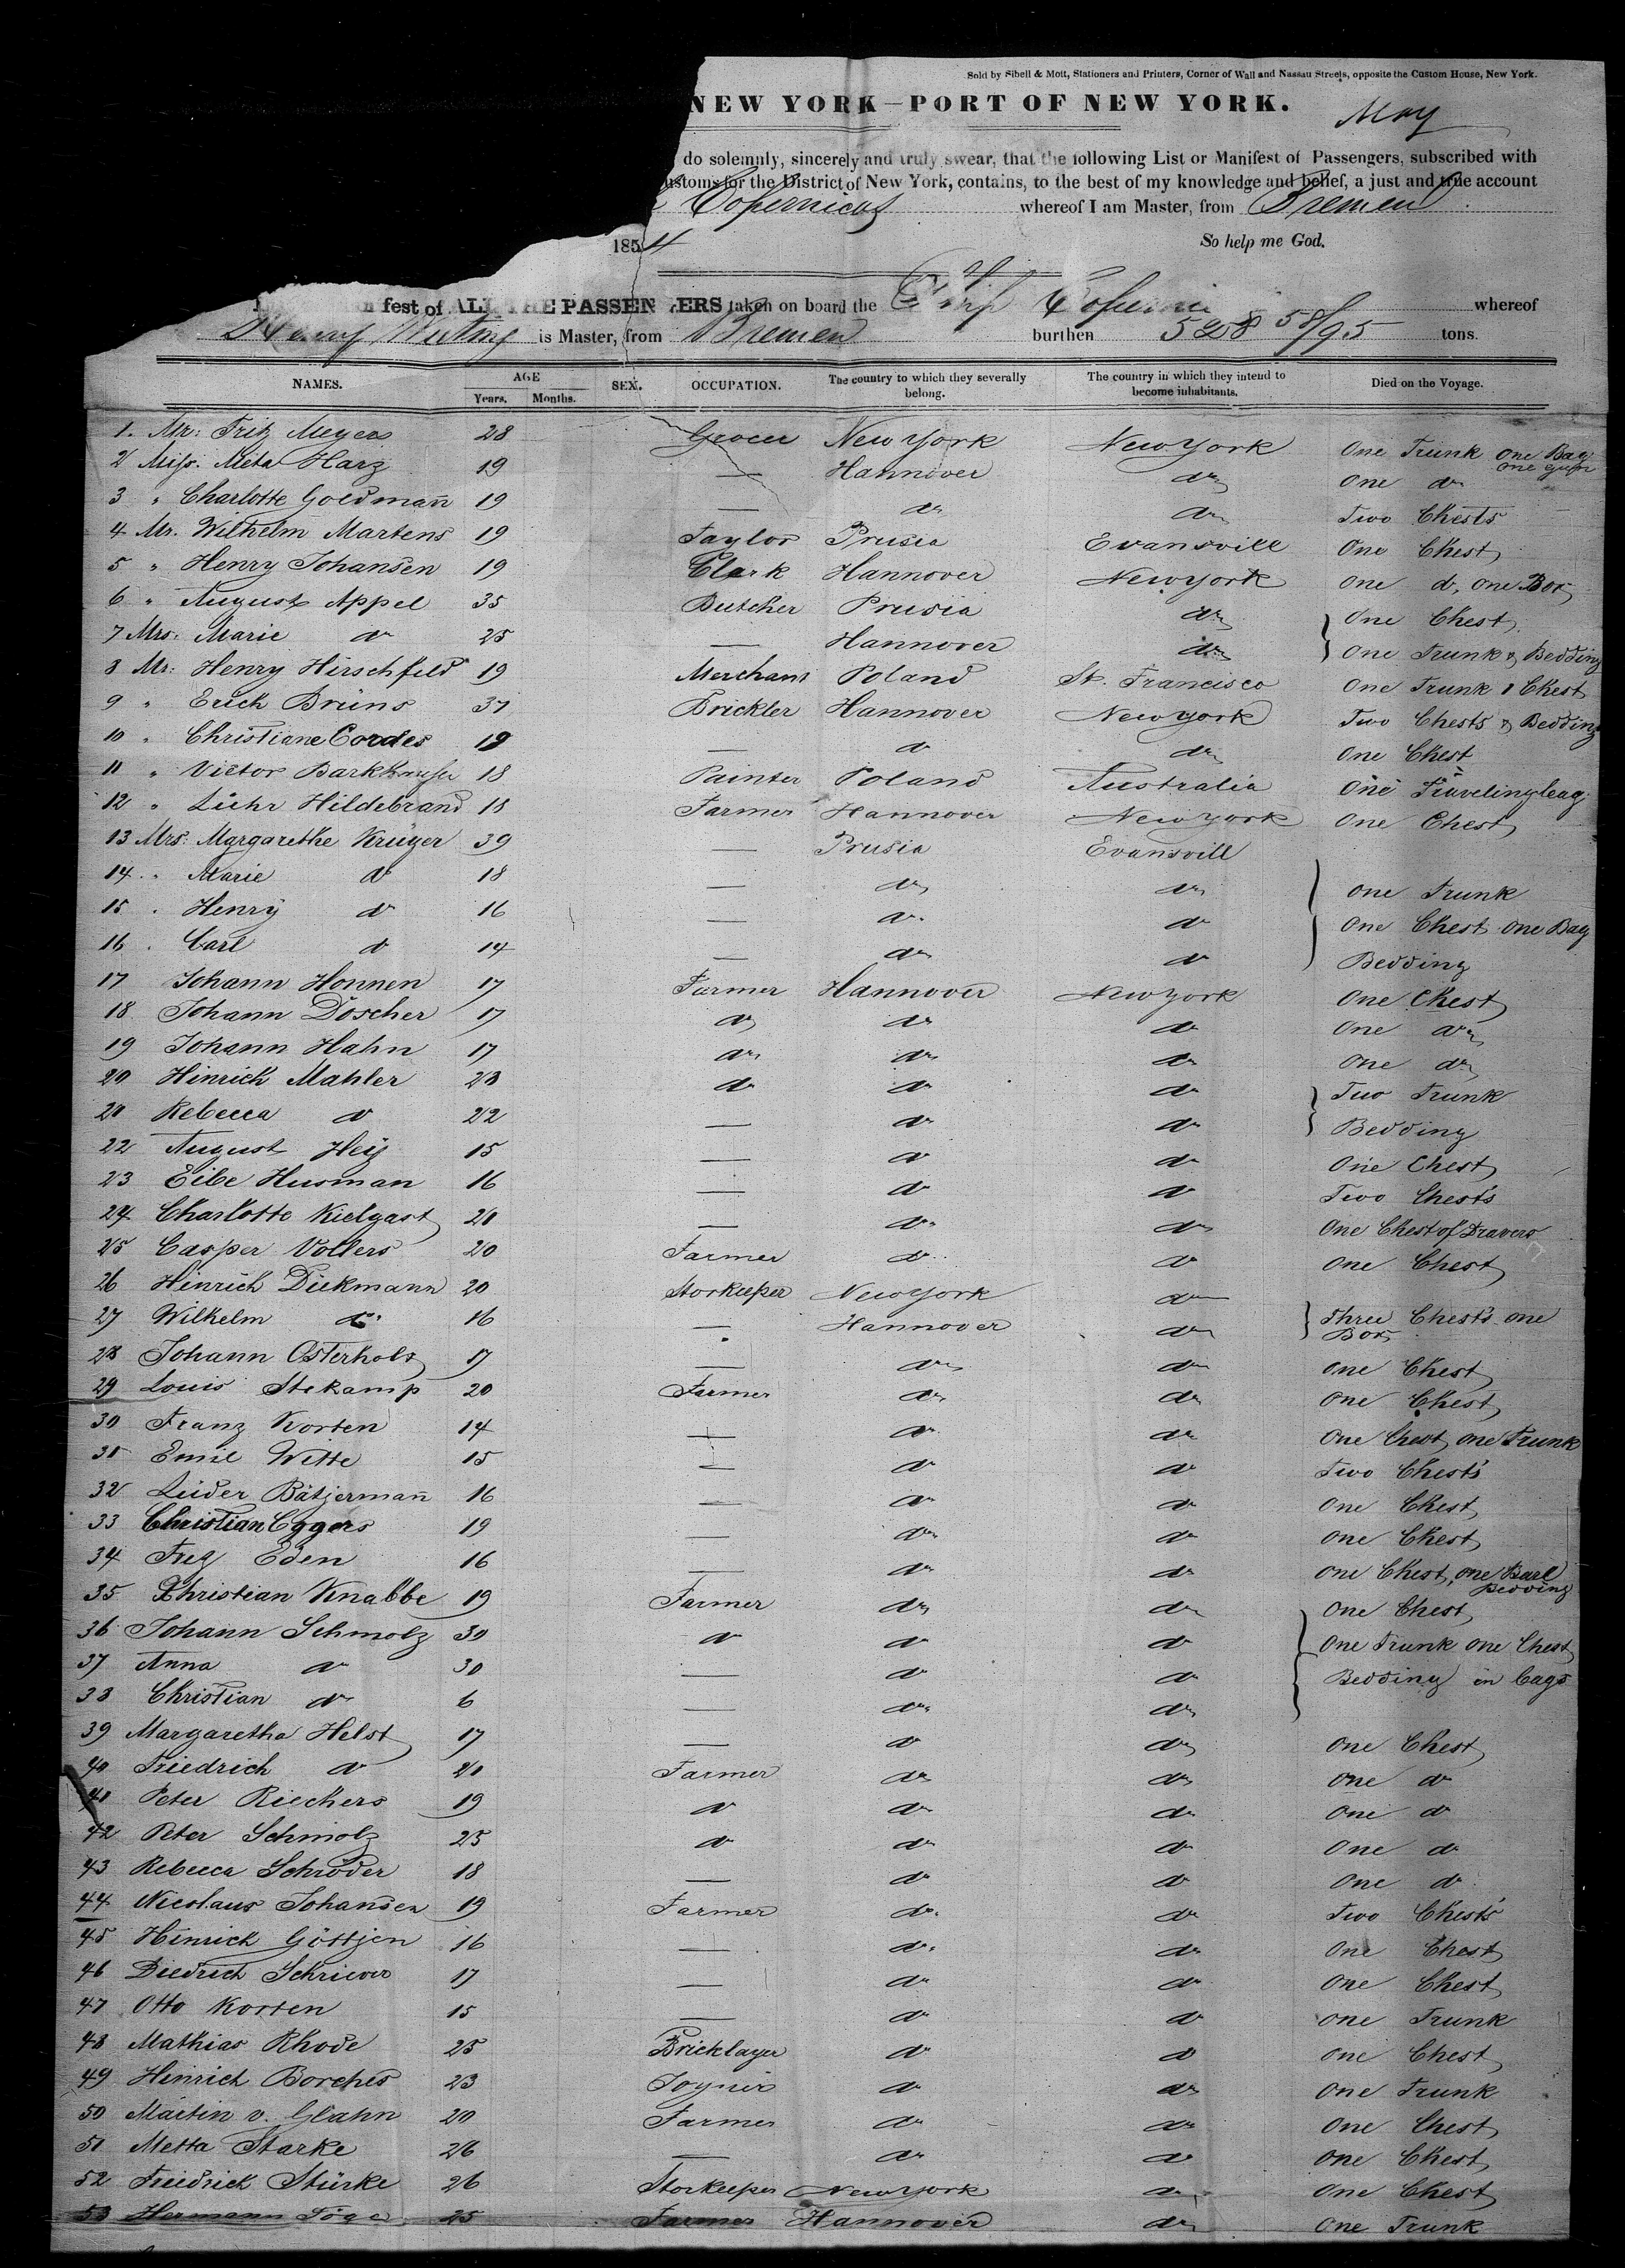 Sold by Sibell & Mott, Stationers and Printers, Corner of Wall and Nassau Streets, opposite the Custom House, New York.
NEW YORK—PORT OF NEW YORK.
May
do solemnly, sincerely and truly swear, that the following List or Manifest of Passengers, subscribed with
ustoms for the District of New York, contains, to the best of my knowledge and belief, a just and true account
Copernicus whereof I am Master, from Bremen
1854 So help me God.
fest of ALL THE PASSENGERS taken on board the Ship whereof
Henry is Master, from Bremen burthen 528 58/95 tons.
NAMES. AGE Years. Months. SEX. OCCUPATION. The country to which they severally belong. The country in which they intend to become inhabitants. Died on the Voyage.
1. Mr: Fritz Meyer 28 Grocer New York New York One Trunk one Bag one
2 Miss. Meta Harz 19 — Hannover do One do
3 " Charlotte Goldmann̄ 19 — do do Two Chests
4 Mr. Wilhelm Martens 19 Taylor Prusia Evansvill One Chest
5 " Henry Johansen 19 Clark Hannover New York One do, one Box
6 " August Appel 35 Butcher Prusia do One Chest
7 Mrs. Marie do 25 — Hannover do One Trunk & Bedding
8 Mr: Henry Hirschfeld 19 Merchant Poland St. Francisco One Trunk 1 Chest
9 " Erich Brüns 37 Brickler Hannover New York Two Chests & Bedding
10 " Christiane Cordes 19 — do do One Chest
11 " Victor 18 Painter Poland Australia One
12 " Lühr Hildebrand 18 Farmer Hannover New York One Chest
13 Mrs: Margarethe Krüger 39 — Prusia Evansvill
14 " Marie do 18 — do do One Trunk
15 " Henry do 16 — do do One Chest one Bag
16 " Carl do 14 — do do Bedding
17 Johann Honnen 17 Farmer Hannover New York One Chest
18 Johann Döscher 17 do do do One do
19 Johann Hahn 17 do do do One do
20 Hinrich Mahler 23 do do do Two Trunk
21 Rebecca do 22 — do do Bedding
22 August Heÿ 15 — do do One Chest
23 Eibe Husman 16 — do do Two Chest's
24 Charlotte Kielgast 21 — do do One Chest of Dravers
25 Casper Vollers 20 Farmer do do One Chest
26 Hinrich Diekmann 20 Storkeeper New York do
27 Wilhelm do 16 — Hannover do Three Chest's one Box
28 Johann Osterholz 17 — do do One Chest
29 Louis Stekamp 20 Farmer do do One Chest
30 Franz Korten 14 — do do One Chest one Trunk
31 Emil Witte 15 — do do Two Chest's
32 Lüder Bätjermann̄ 16 — do do One Chest
33 Christian Eggers 19 — do do One Chest
34 Eden 16 — do do One Chest, one Barl Bedding
35 Christian Knabbe 19 Farmer do do One Chest
36 Johann Schmolz 30 do do do One Trunk one Chest
37 Anna do 30 — do do Bedding in
38 Christian do 6 — do do
39 Margaretha Helst 17 — do do One Chest
40 Friedrich do 21 Farmer do do One do
41 Peter Riechers 19 do do do One do
42 Peter Schmolz 25 do do do One do
43 Rebecca Schröder 18 — do do One do
44 Nicolaus Johansen 19 Farmer do do Two Chest's
45 Hinrich Göttjen 16 — do do One Chest
46 Diedrich Schriever 17 — do do One Chest
47 Otto Korten 15 — do do One Trunk
48 Mathias Rhode 25 Bricklayer do do One Chest
49 Hinrich Borchers 23 Joyner do do One Trunk
50 Martin v. Glahn 20 Farmer do do One Chest
51 Metta Starke 26 — do do One Chest
52 Friedrich Stürke 26 Storkeeper New York do One Chest
53 Hermann 25 Farmer Hannover do One Trunk